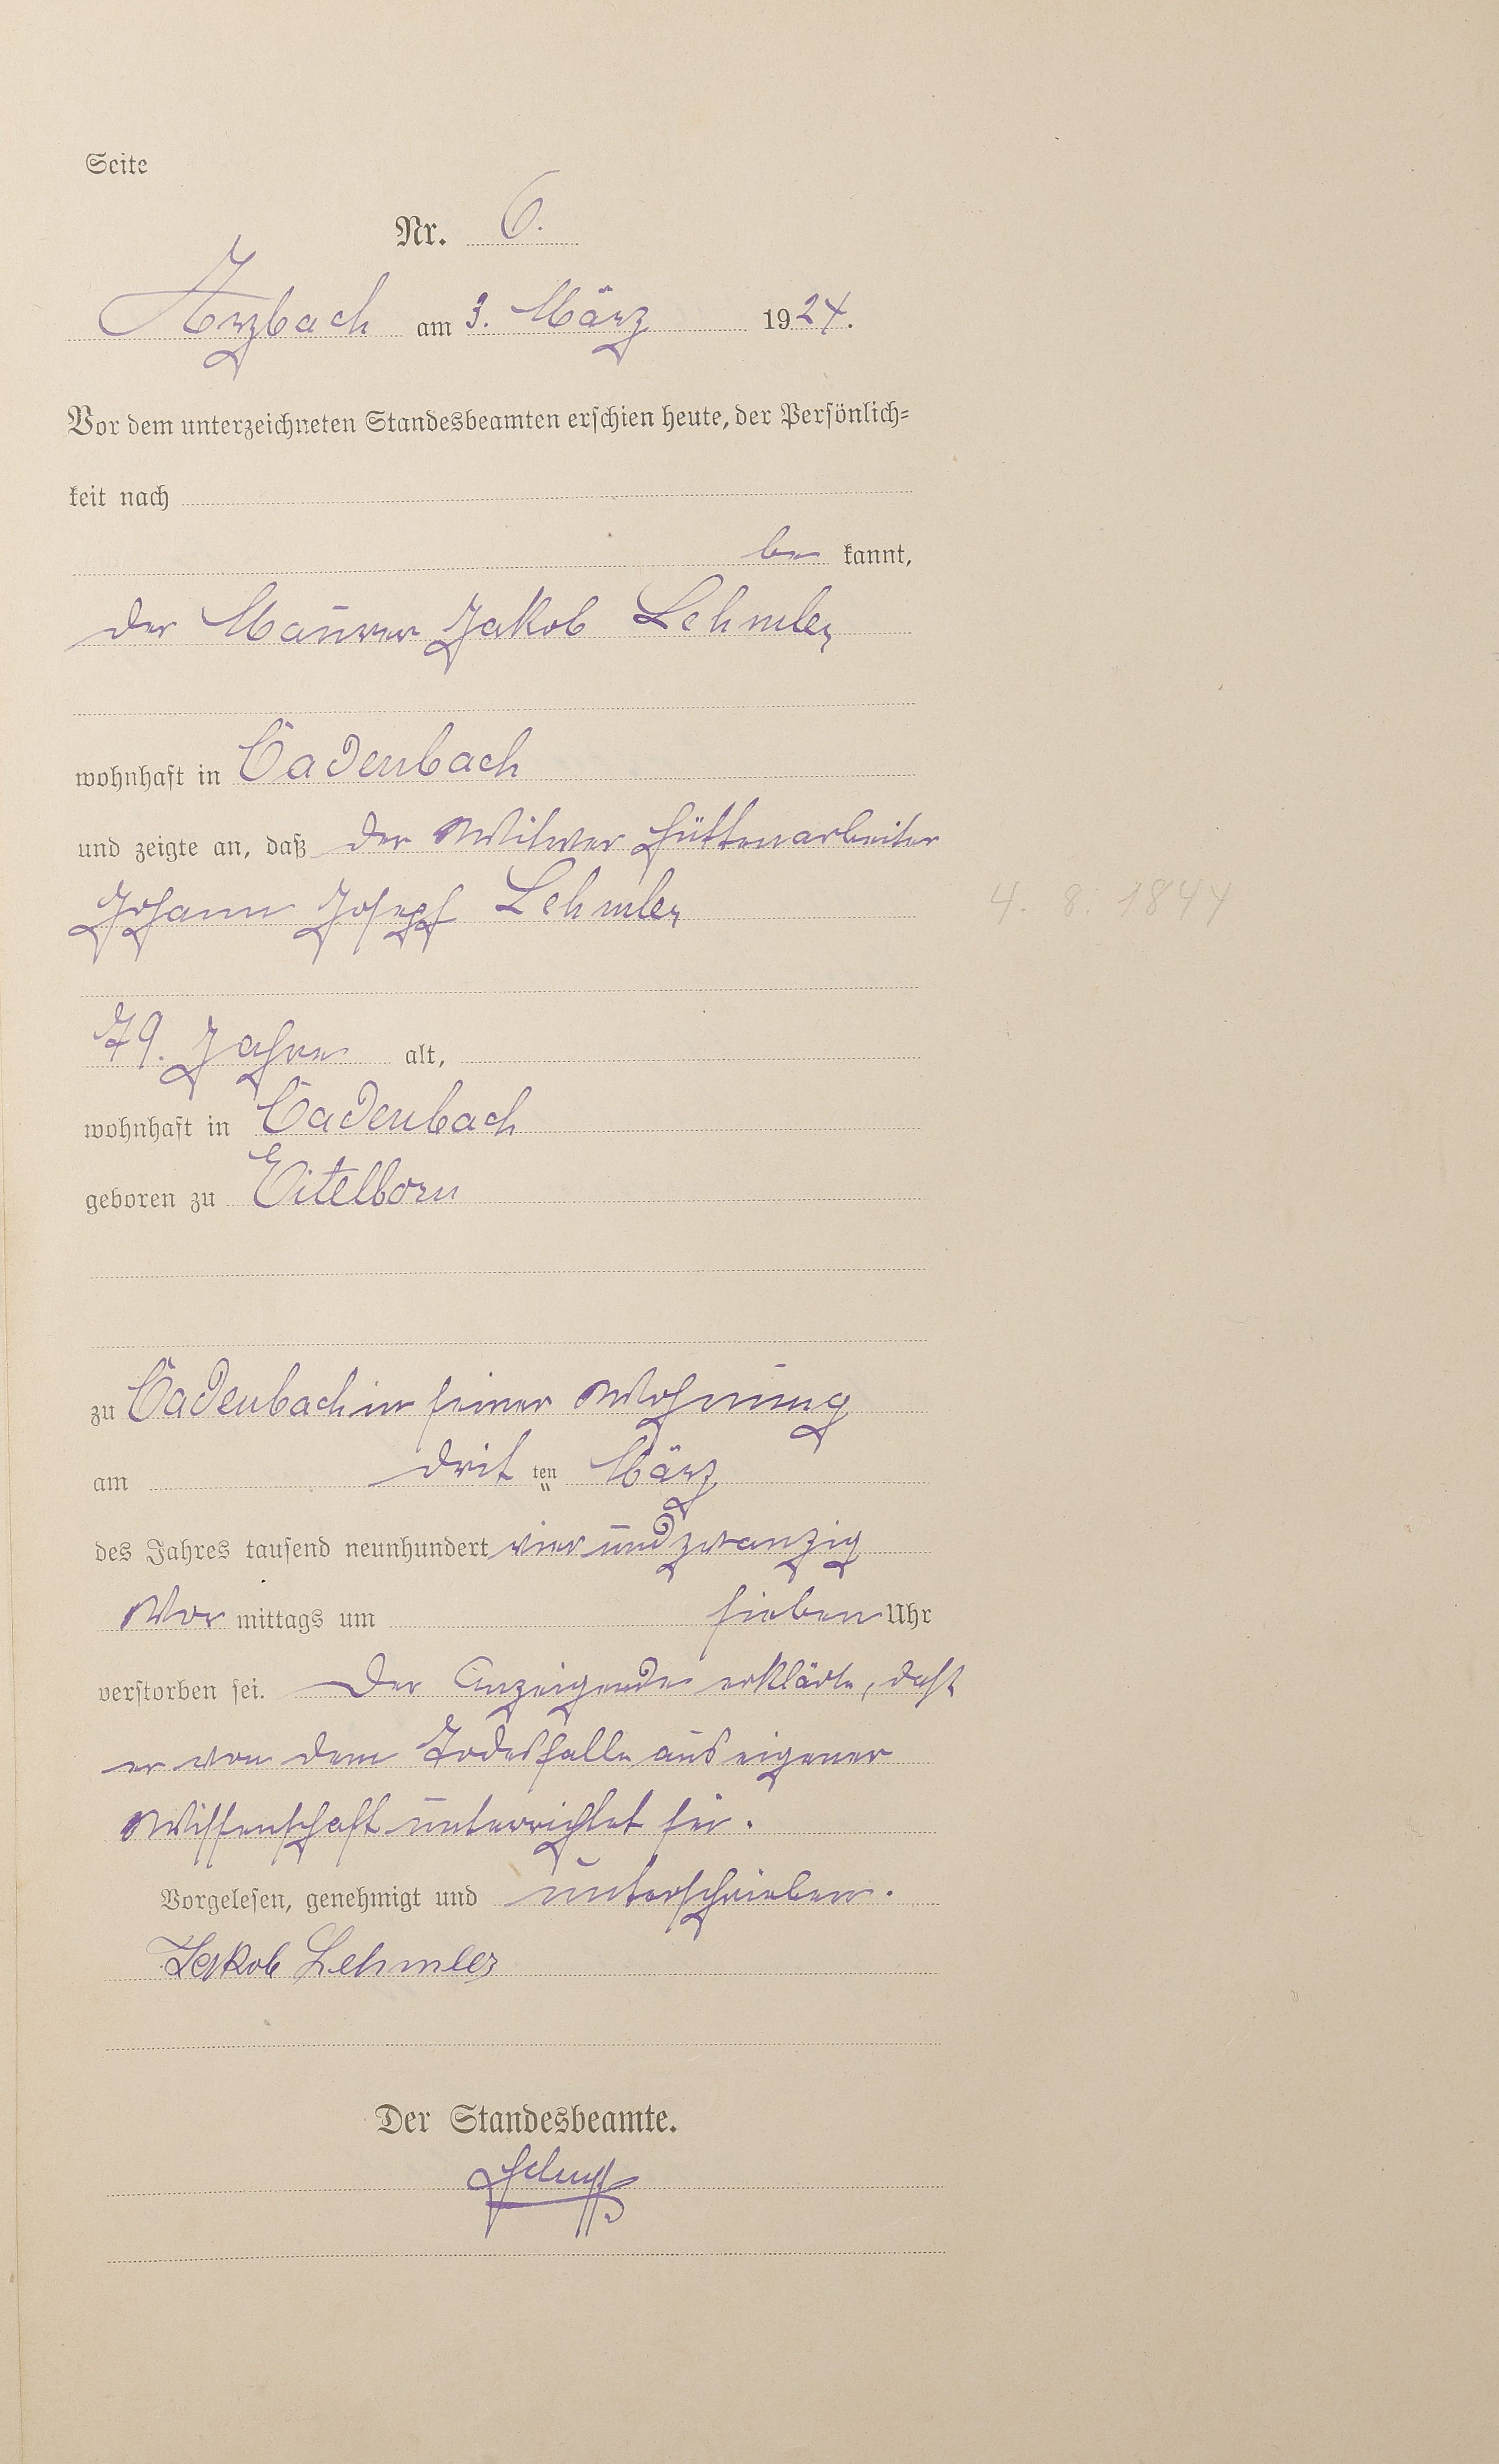 Seite
Nr. 6.
Arzbach am 3. März 1924.
Vor dem unterzeichneten Standesbeamten erschien heute, der Persönlich=
keit nach
be kannt,
der Maurer Jakob Lehmler
wohnhaft in Cadenbach
und zeigte an, daß der Witwer Hüttenarbeiter
Johann Joseph Lehmler
4. 8. 1844
79. Jahre alt,
wohnhaft in Cadenbach
geboren zu Eitelborn
zu Cadenbach in seiner Wohnung
am drit ten März
des Jahres tausend neunhundert vier und zwanzig
Vor mittags um sieben Uhr
verstorben sei. Der Anzeigende erklärte, daß
er von dem Todesfalle aus eigener
Wissenschaft unterrichtet sei.
Vorgelesen, genehmigt und unterschrieben.
Jakob Lehmler
Der Standesbeamte.